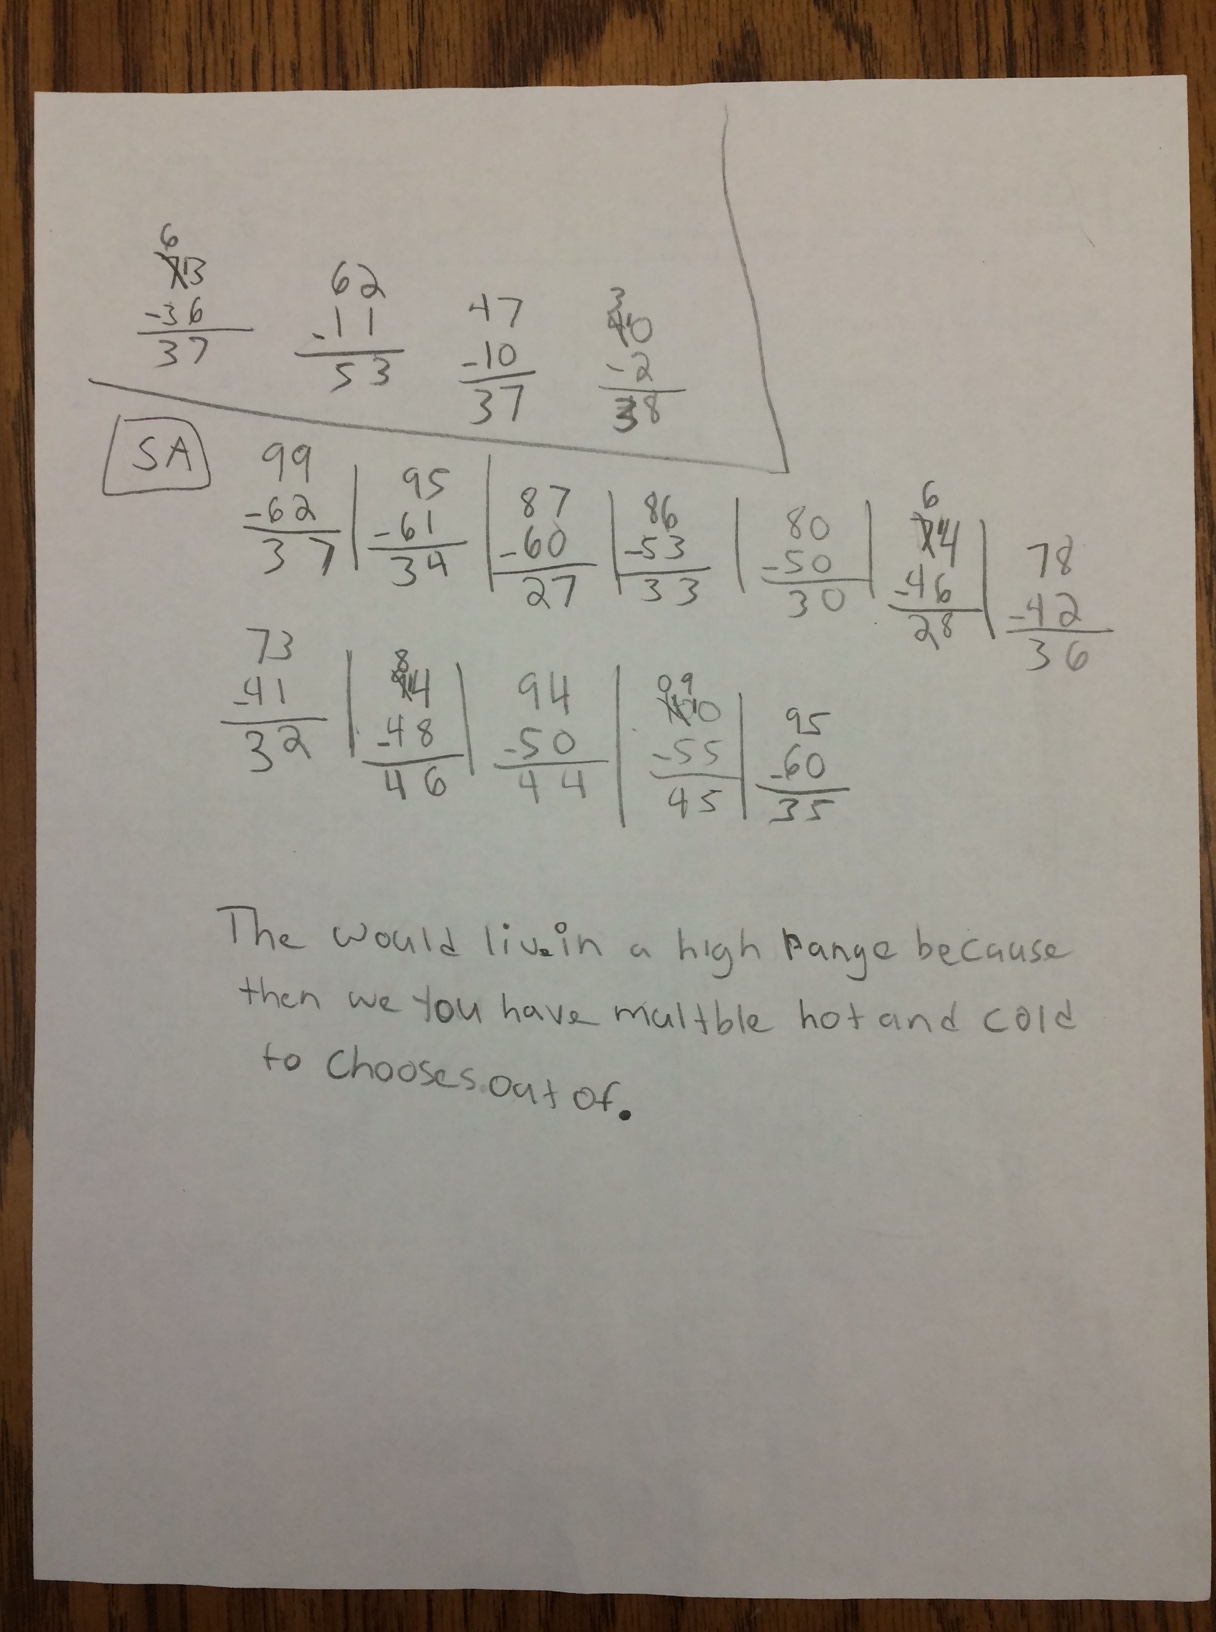 6
73 62 47 3
-36 -11 -10 40
37 53 37 -2
38
SA
99 95 87 86 80 6
-62 -61 -60 -53 -50 74 78
37 34 27 33 30 -46 -42
28 36
73 8 94 09 95
-41 94 -50 100 -60
32 -48 44 -55 35
46 45
The would live in a high Range because
then we you have multble hot and cold
to chooses out of.